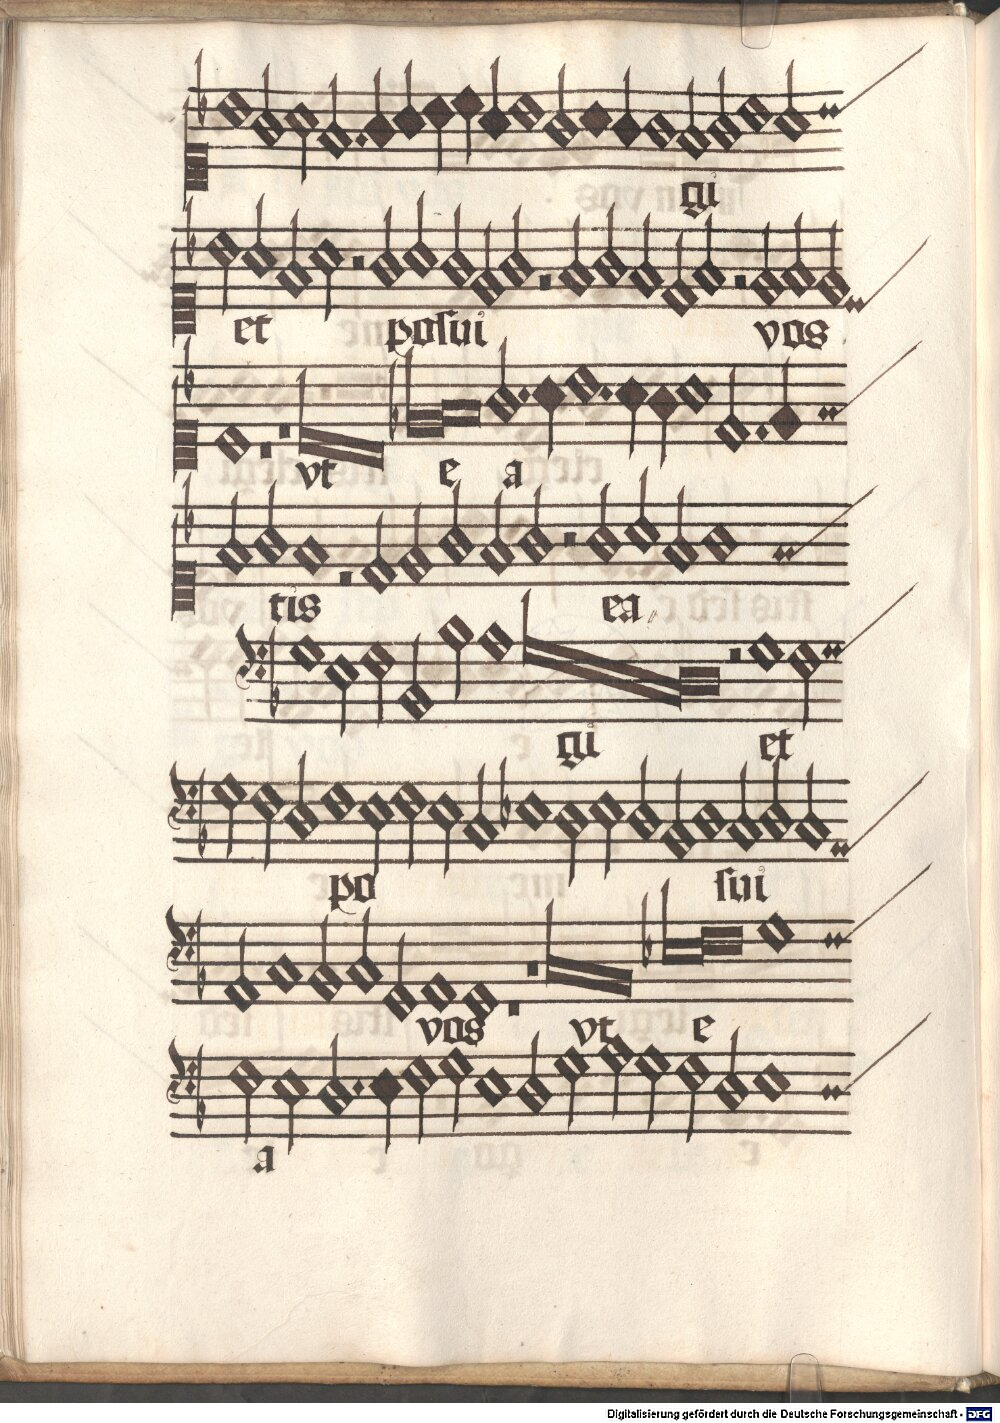 gi
et posui vos
vt e a
tis ea
gi et
po sui
vos vt e
a
Digitalisierung gefördert durch die Deutsche Forschungsgemeinschaft - DFG